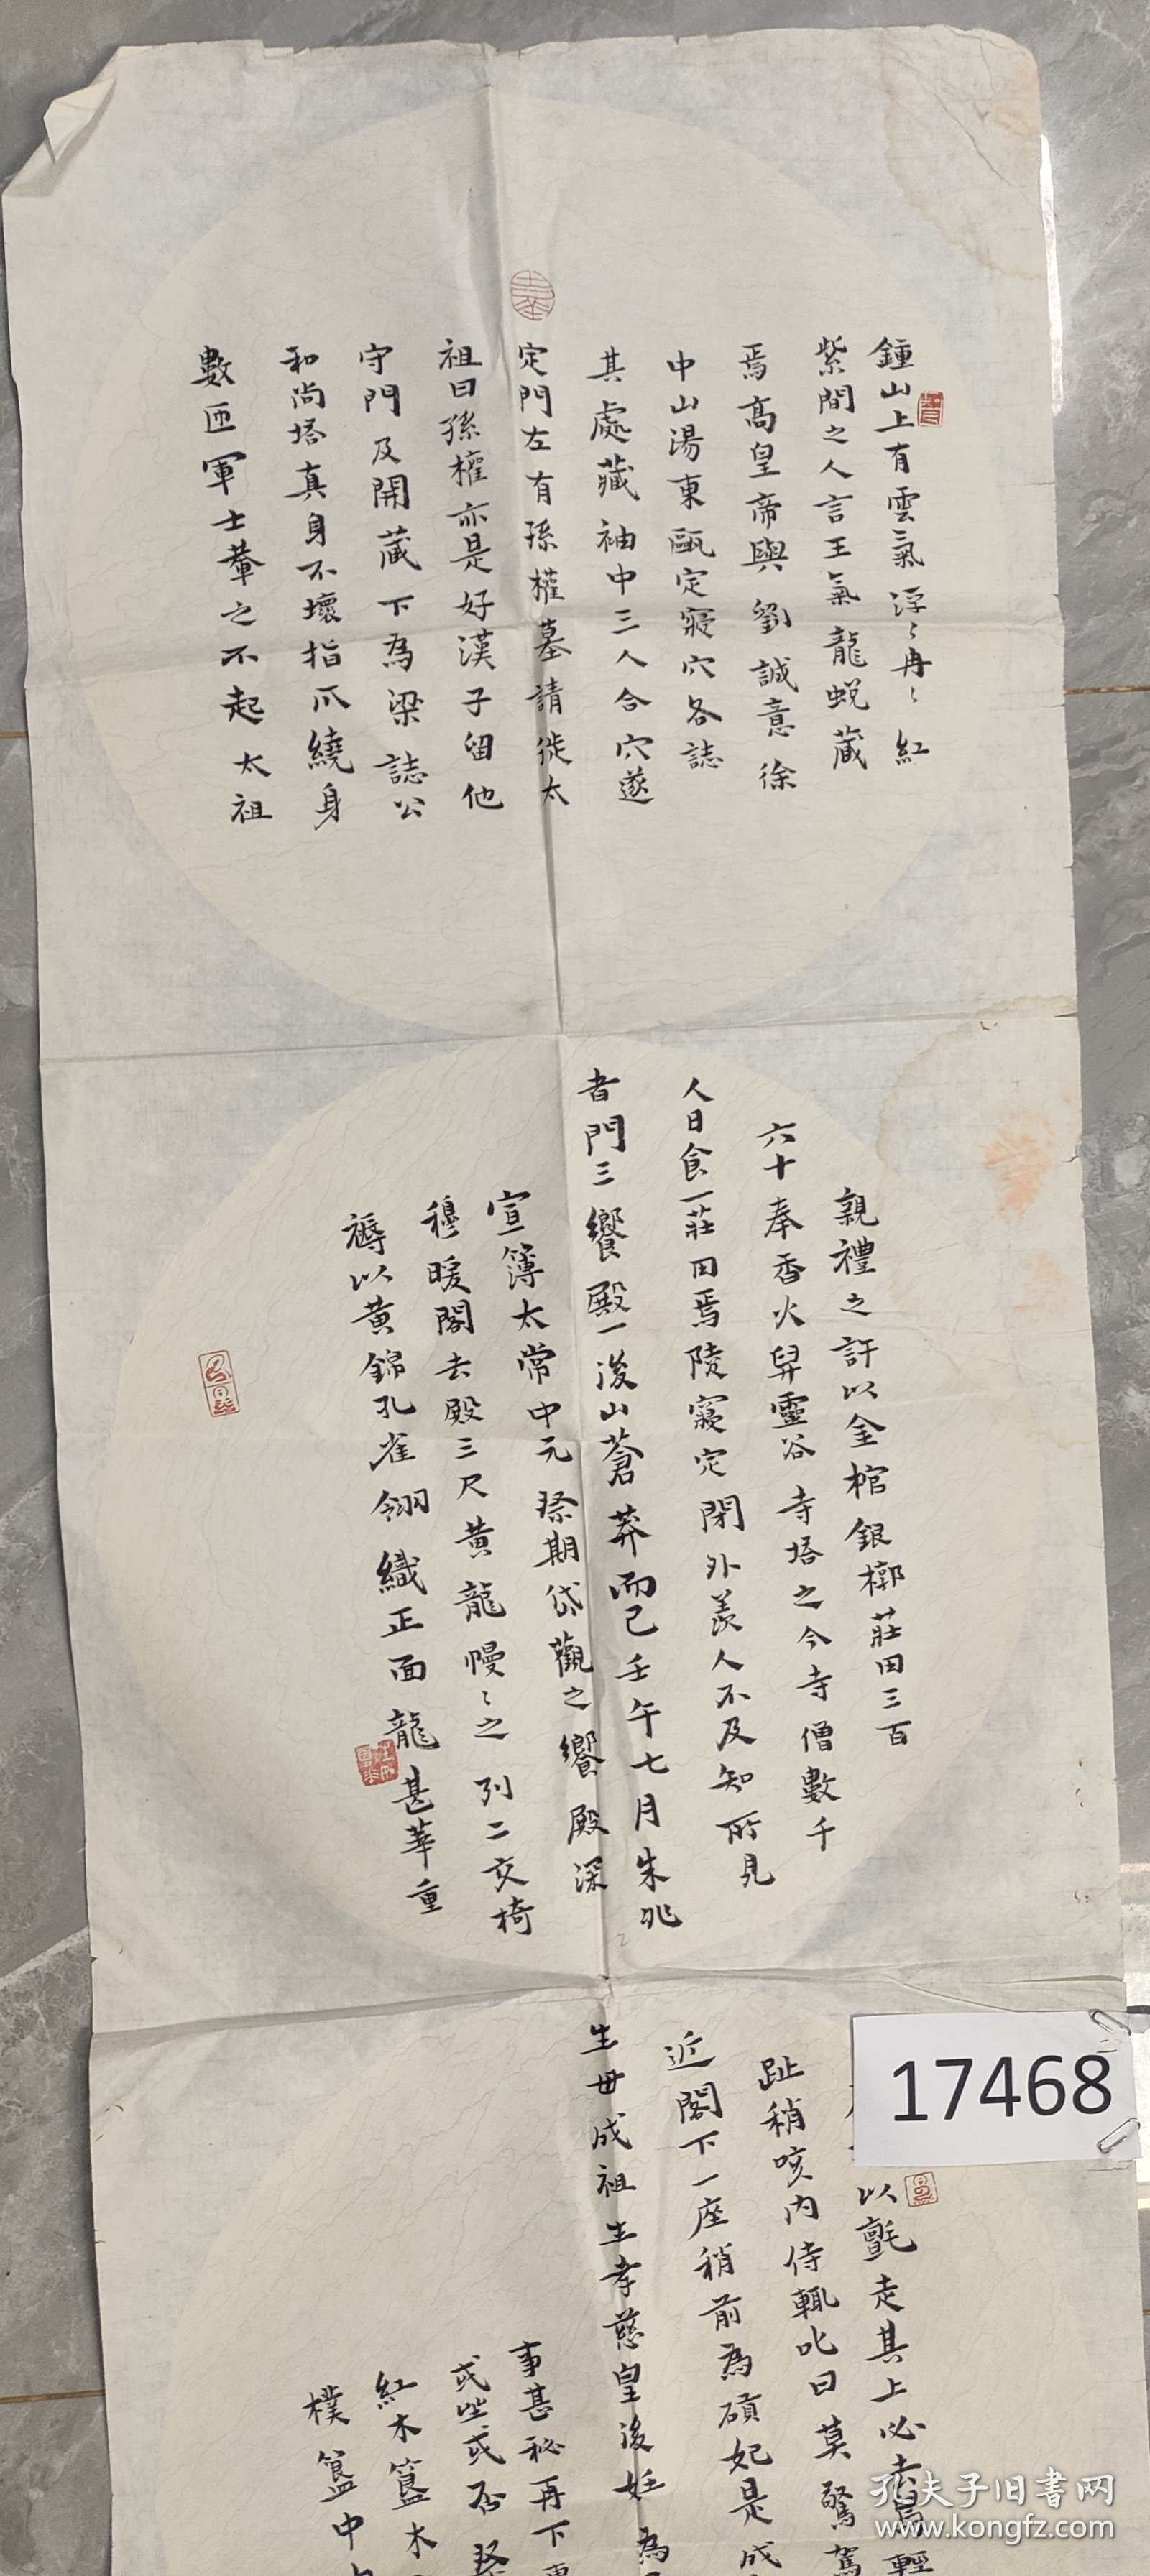 鍾山上有雲氣浮〻冉〻紅
紫間之人言王氣龍蛻藏
焉高皇帝與劉誠意徐
中山湯東甌定寢穴各誌
其處藏袖中三人合穴遂
定門左有孫權墓請徙太
祖曰孫權亦是好漢子留他
守門及開藏下為梁誌公
和尚塔真身不壞指爪繞身
數匝軍士輦之不起太祖
親禮之許以金棺銀槨莊田三百
六十奉香火舁靈谷寺塔之今寺僧數千
人日食一莊田焉陵寢定閉外羨人不及知所見
者門三饗殿一後山蒼莽而已壬午七月朱兆
宣簿太常中元祭期岱觀之饗殿深
穆暖閣去殿三尺黃龍幔〻之列二交椅
褥以黃錦孔雀翎織正面龍甚華重
以氈走其上必去舄輕
趾稍咳內侍輒叱曰莫驚駕
近閣下一座稍前為碩妃是成
生母成祖生孝慈皇後妊為
事甚祕再下
或坐或否祭
紅木簋木
樸簋中
17468
孔夫子旧书网
www.kongfz.com